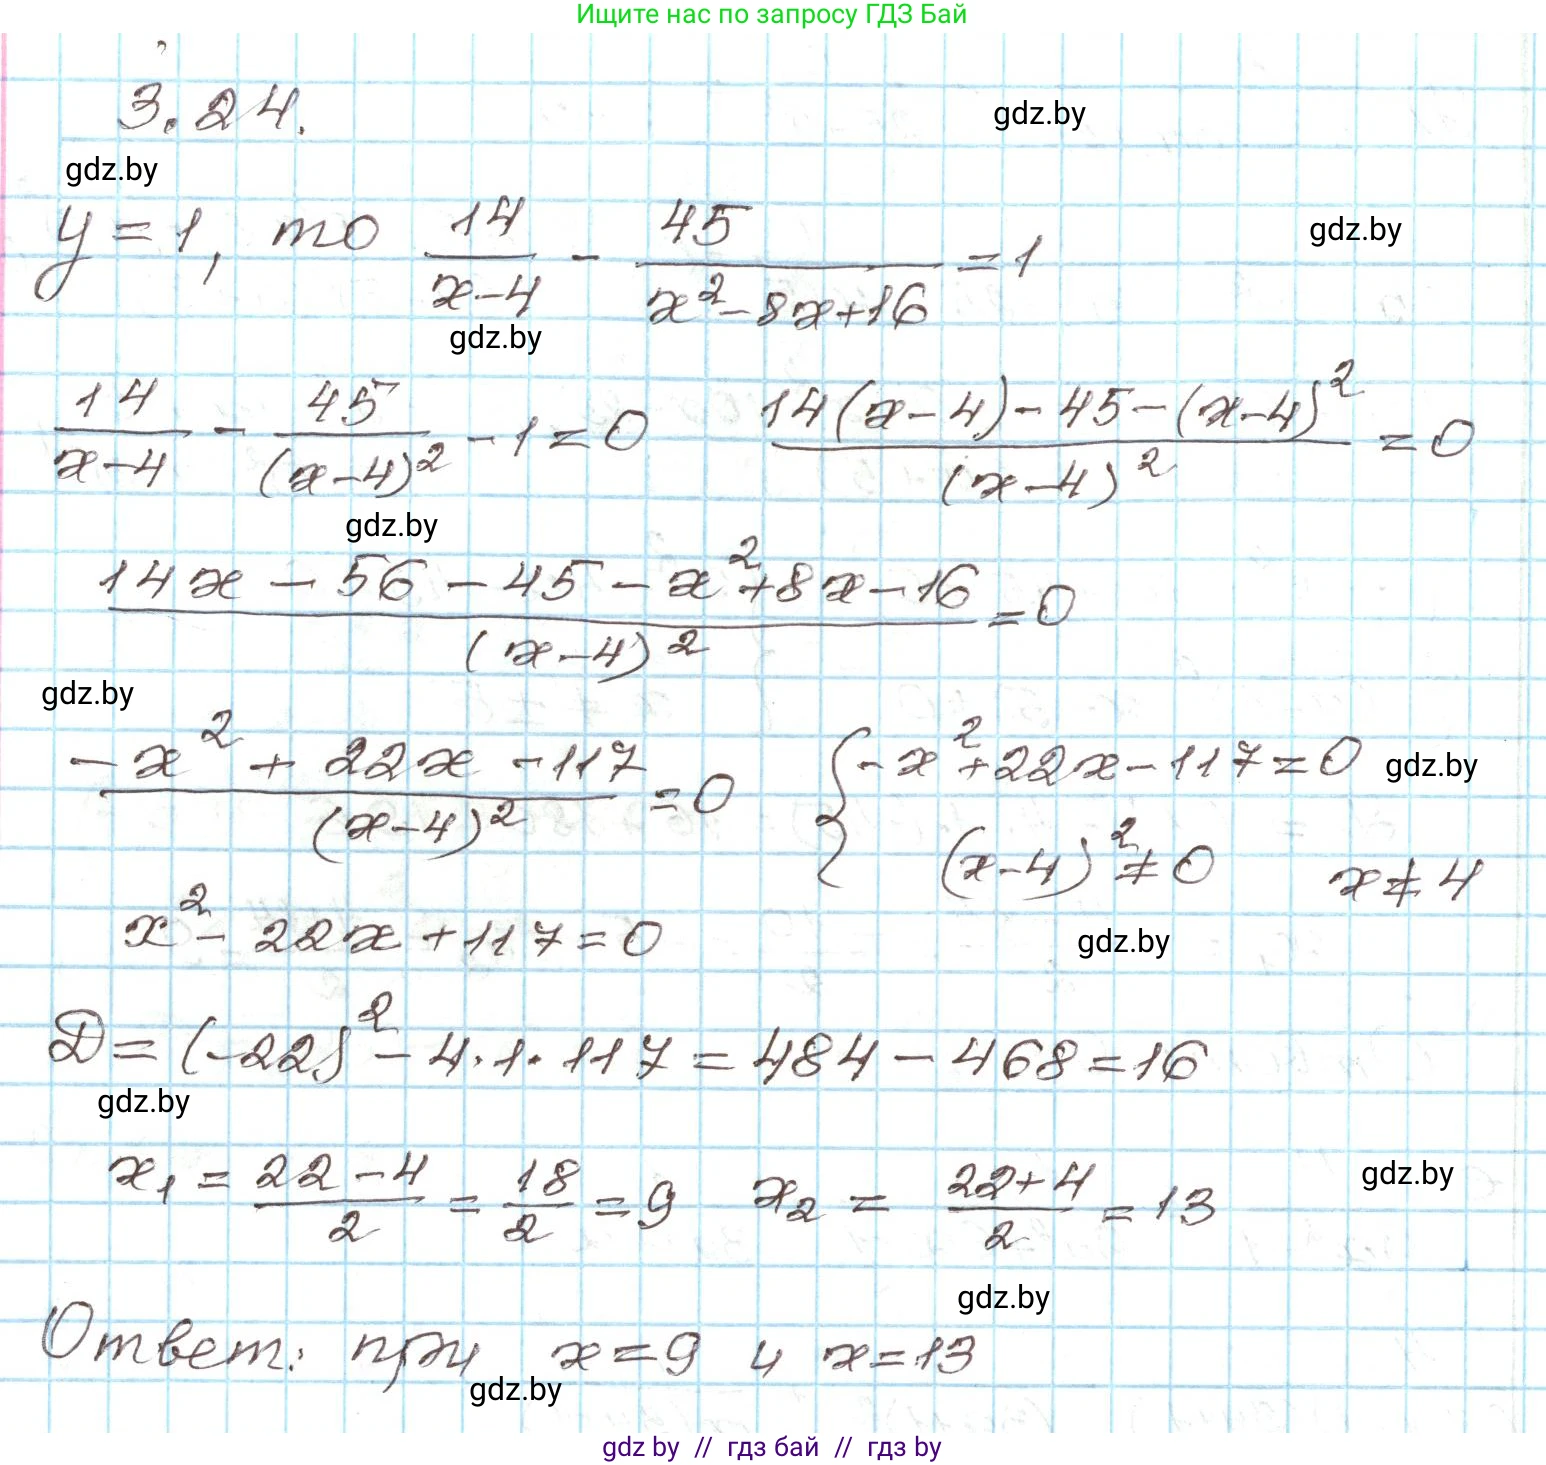 Ищите нас по запросу ГДЗ Бай
3.24.
gdz.by
gdz.by
y = 1, то 14/(x-4) - 45/(x²-8x+16) = 1
gdz.by
gdz.by
14/(x-4) - 45/(x-4)² - 1 = 0   (14(x-4) - 45 - (x-4)²)/(x-4)² = 0
gdz.by
(14x - 56 - 45 - x² + 8x - 16)/(x-4)² = 0
gdz.by
(-x² + 22x - 117)/(x-4)² = 0   { -x² + 22x - 117 = 0
gdz.by
(x-4)² ≠ 0   x ≠ 4
x² - 22x + 117 = 0
gdz.by
D = (-22)² - 4·1·117 = 484 - 468 = 16
gdz.by
x₁ = (22-4)/2 = 18/2 = 9   x₂ = (22+4)/2 = 13
gdz.by
gdz.by
Ответ: при x = 9 и x = 13
gdz.by
gdz by // гдз бай // гдз by